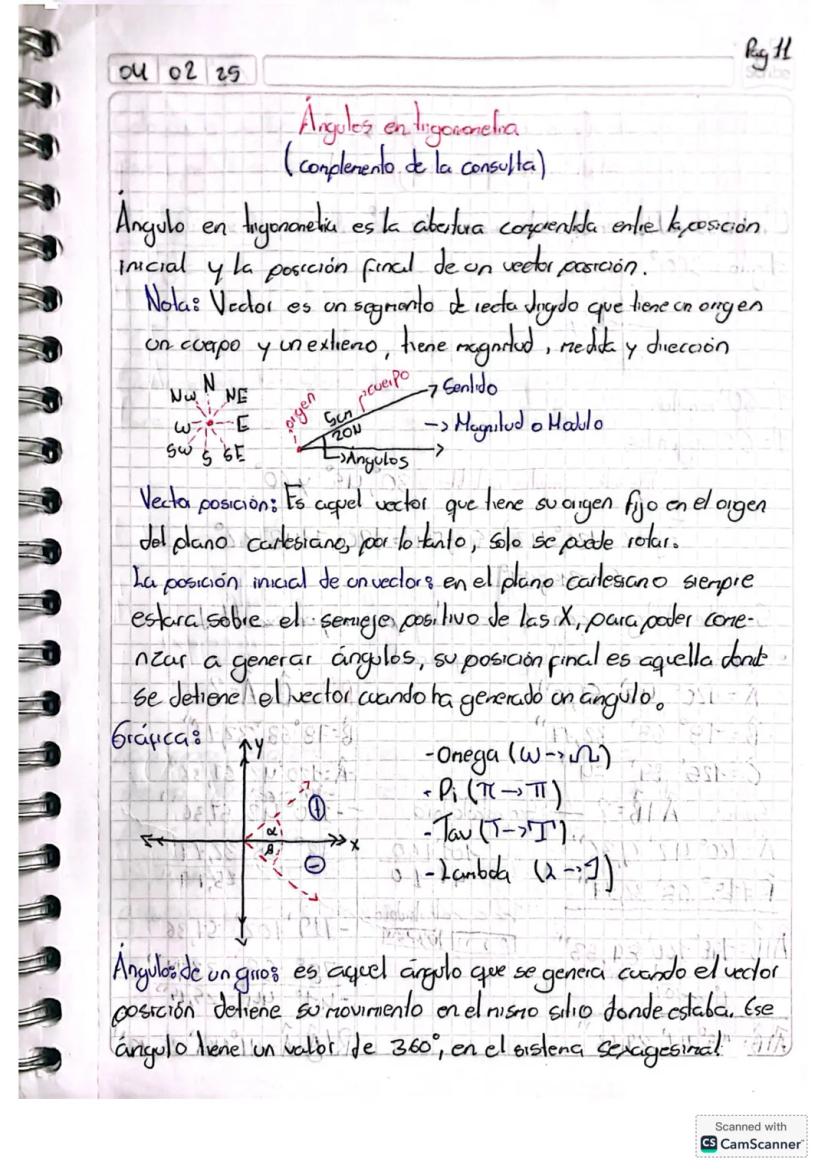 Pag 11
04 02 25
Scribe
Ángulos en trigonometria
(complemento de la consulta)
Ángulo en trigonometria es la abertura comprendida entre la posición
inicial y la posición final de un vector posición.
Nota: Vector es un segmento de recta dirigido que tiene un origen
un cuerpo y un extremo, tiene magnitud, medida y dirección
N
NW NE
W E
SW S SE
origen
cuerpo
Sentido
5cm
20N
-> Magnitud o Modulo
->Ángulos
Vector posición: Es aquel vector que tiene su origen fijo en el origen
del plano cartesiano, por lo tanto, solo se puede rotar.
La posición inicial de un vector: en el plano cartesiano siempre
estara sobre el semieje positivo de las X, para poder come-
nzar a generar ángulos, su posición final es aquella donde
se detiene el vector cuando ha generado un angulo.
Gráfica:
y
+
α
x
β
-
- Omega (ω -> Ω)
- Pi (π -> Π)
- Tau (τ -> T)
- Lambda
Ángulos de un giro: es aquel ángulo que se genera cuando el vector
posición detiene su movimiento en el mismo sitio donde estaba. Ese
ángulo tiene un valor de 360°, en el sistema sexagesimal.
Scanned with
CS CamScanner